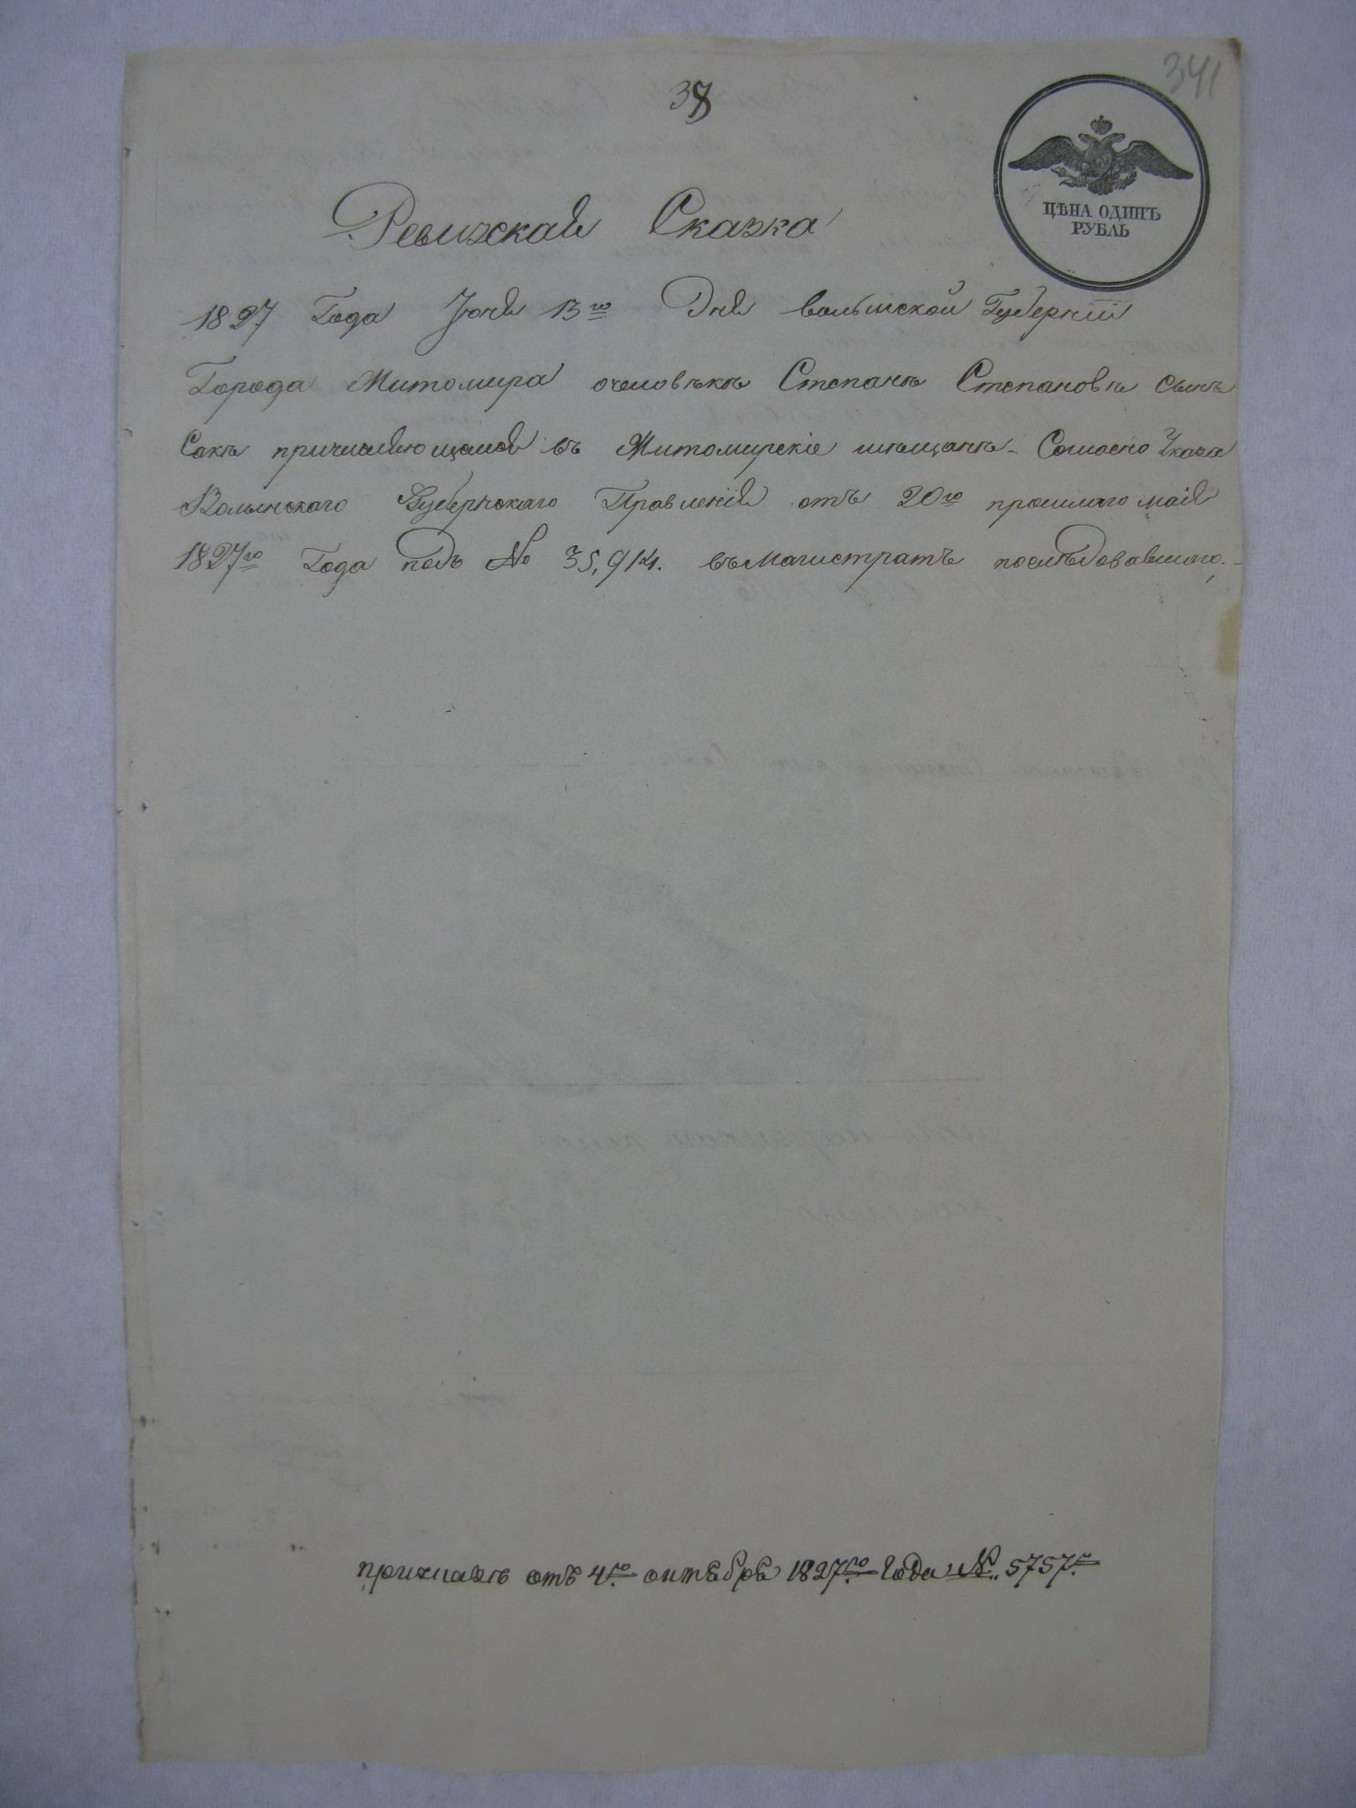 341
38
ЦѢНА ОДИНЪ
РУБЛЬ
Ревижская Сказка
1827 Года Іюня 13го Дня волынской Губерніи
Города Житомира очеловѣкѣ Степанѣ Степановѣ сынѣ
Сакѣ причисляющемся въ Житомирскіе мѣщанѣ. Согласно Указа
Волынского Губернскаго Правленія отъ 20го прошлаго маія
1827го Года подъ № 35,914. въмагистратъ послѣдовавшаго.
приказъ отъ 4го октября 1827го Года № 5757.